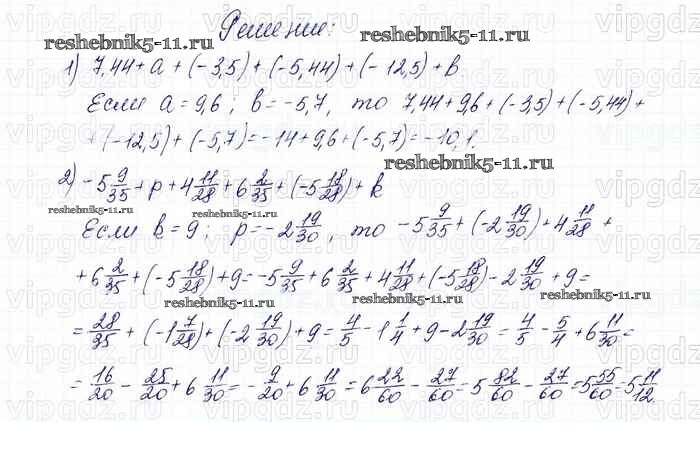 Решение:
reshebnik5-11.ru
1) 7,44 + a + (-3,5) + (-5,44) + (-12,5) + b
Если a = 9,6; b = -5,7, то 7,44 + 9,6 + (-3,5) + (-5,44) +
+ (-12,5) + (-5,7) = -14 + 9,6 + (-5,7) = -10,1.
reshebnik5-11.ru
2) -5 9/35 + p + 4 11/28 + 6 2/35 + (-5 18/28) + k
reshebnik5-11.ru reshebnik5-11.ru
Если k = 9; p = -2 19/30, то -5 9/35 + (-2 19/30) + 4 11/28 +
+ 6 2/35 + (-5 18/28) + 9 = -5 9/35 + 6 2/35 + 4 11/28 + (-5 18/28) - 2 19/30 + 9 =
reshebnik5-11.ru reshebnik5-11.ru reshebnik5-11.ru
= 28/35 + (-1 7/28) + (-2 19/30) + 9 = 4/5 - 1 1/4 + 9 - 2 19/30 = 4/5 - 5/4 + 6 11/30 =
= 16/20 - 25/20 + 6 11/30 = -9/20 + 6 11/30 = 6 22/60 - 27/60 = 5 82/60 - 27/60 = 5 55/60 = 5 11/12.